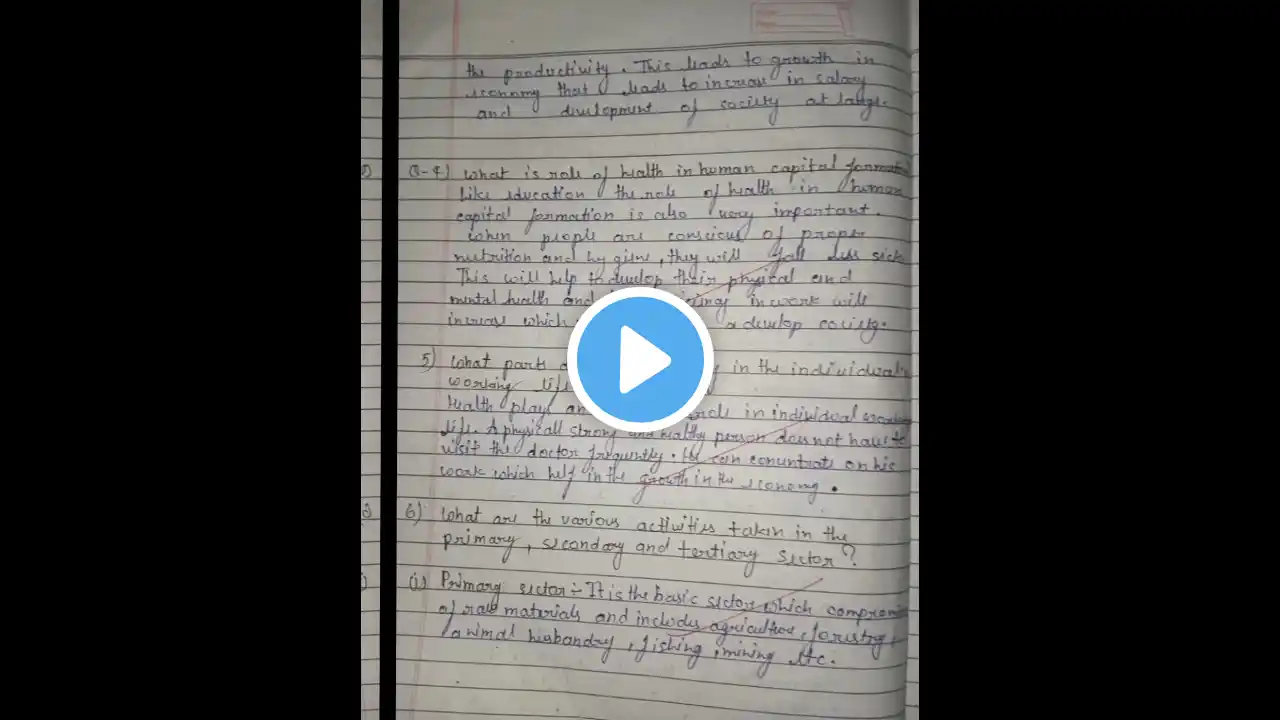 the productivity. This leads to growth in
economy that leads to increase in salary
and development of society at large.
Q-4) What is role of health in human capital
Like education the role of health in human
capital formation is also very important.
When people are conscious of proper
nutrition and hygiene, they will fall less sick
This will help to develop their physical and
mental health and in work will
increase which develop society.
5) What part in the individual's
working life
Health plays an role in individual working
life. A physicall strong and healthy person does not have to
visit the doctor frequently. He can concentrate on his
work which help in the growth in the economy.
6) What are the various activities taken in the
primary, secondary and tertiary sector?
(i) Primary sector :- It is the basic sector which
of raw materials and includes agriculture, forestry,
animal husbandry, fishing, mining etc.